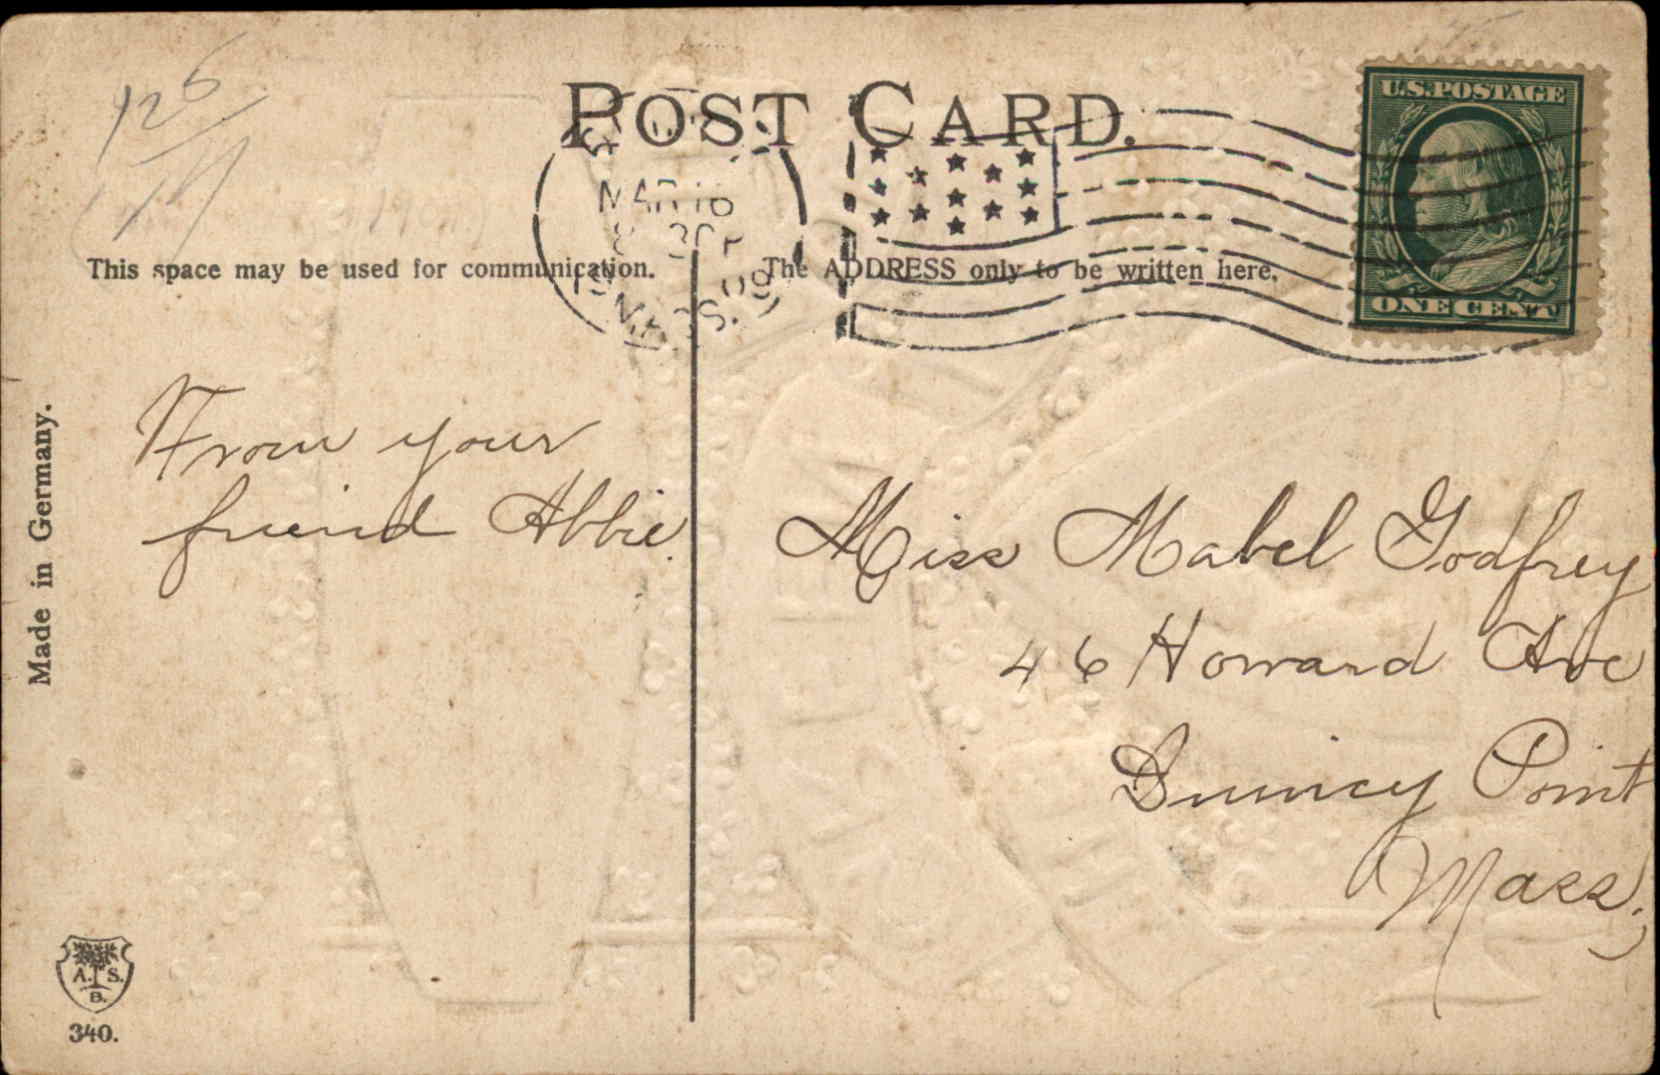 126
POST CARD.
U.S. POSTAGE
MAR 16
1909
MASS.
This space may be used for communication.
The ADDRESS only to be written here.
ONE CENT
Made in Germany.
From your
friend Abbie.
Miss Mabel Godfrey
46 Howard Ave
Quincy Point
Mass.
A. S.
B.
340.